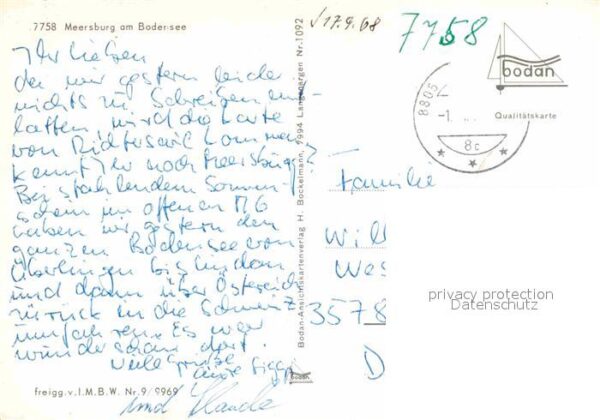 7758 Meersburg am Bodensee
√ 17.9.68
7758
Ihr Lieben
da wir gestern leider
nichts zu Schreiben
hatten, wird die Karte
von Richterswil kommen
kennt Ihr noch Meersburg?
Bei strahlendem Sonnen-
schein im offenen MG
haben wir gestern den
ganzen Bodensee von
Überlingen bis Lindau
und dann über Österreich
zurück in die Schweiz
umfahren. Es war
wunderschön dort.
Viele Grüße
Eure
und
freigg.v.I.M.B.W. Nr.9/9969
Bodan-Ansichtskartenverlag H. Bockelmann, 7994 Langenargen Nr.1092
bodan
bodan
Qualitätskarte
8805
-1.
8c
Familie
Will
Wes
3578
D
privacy protection
Datenschutz